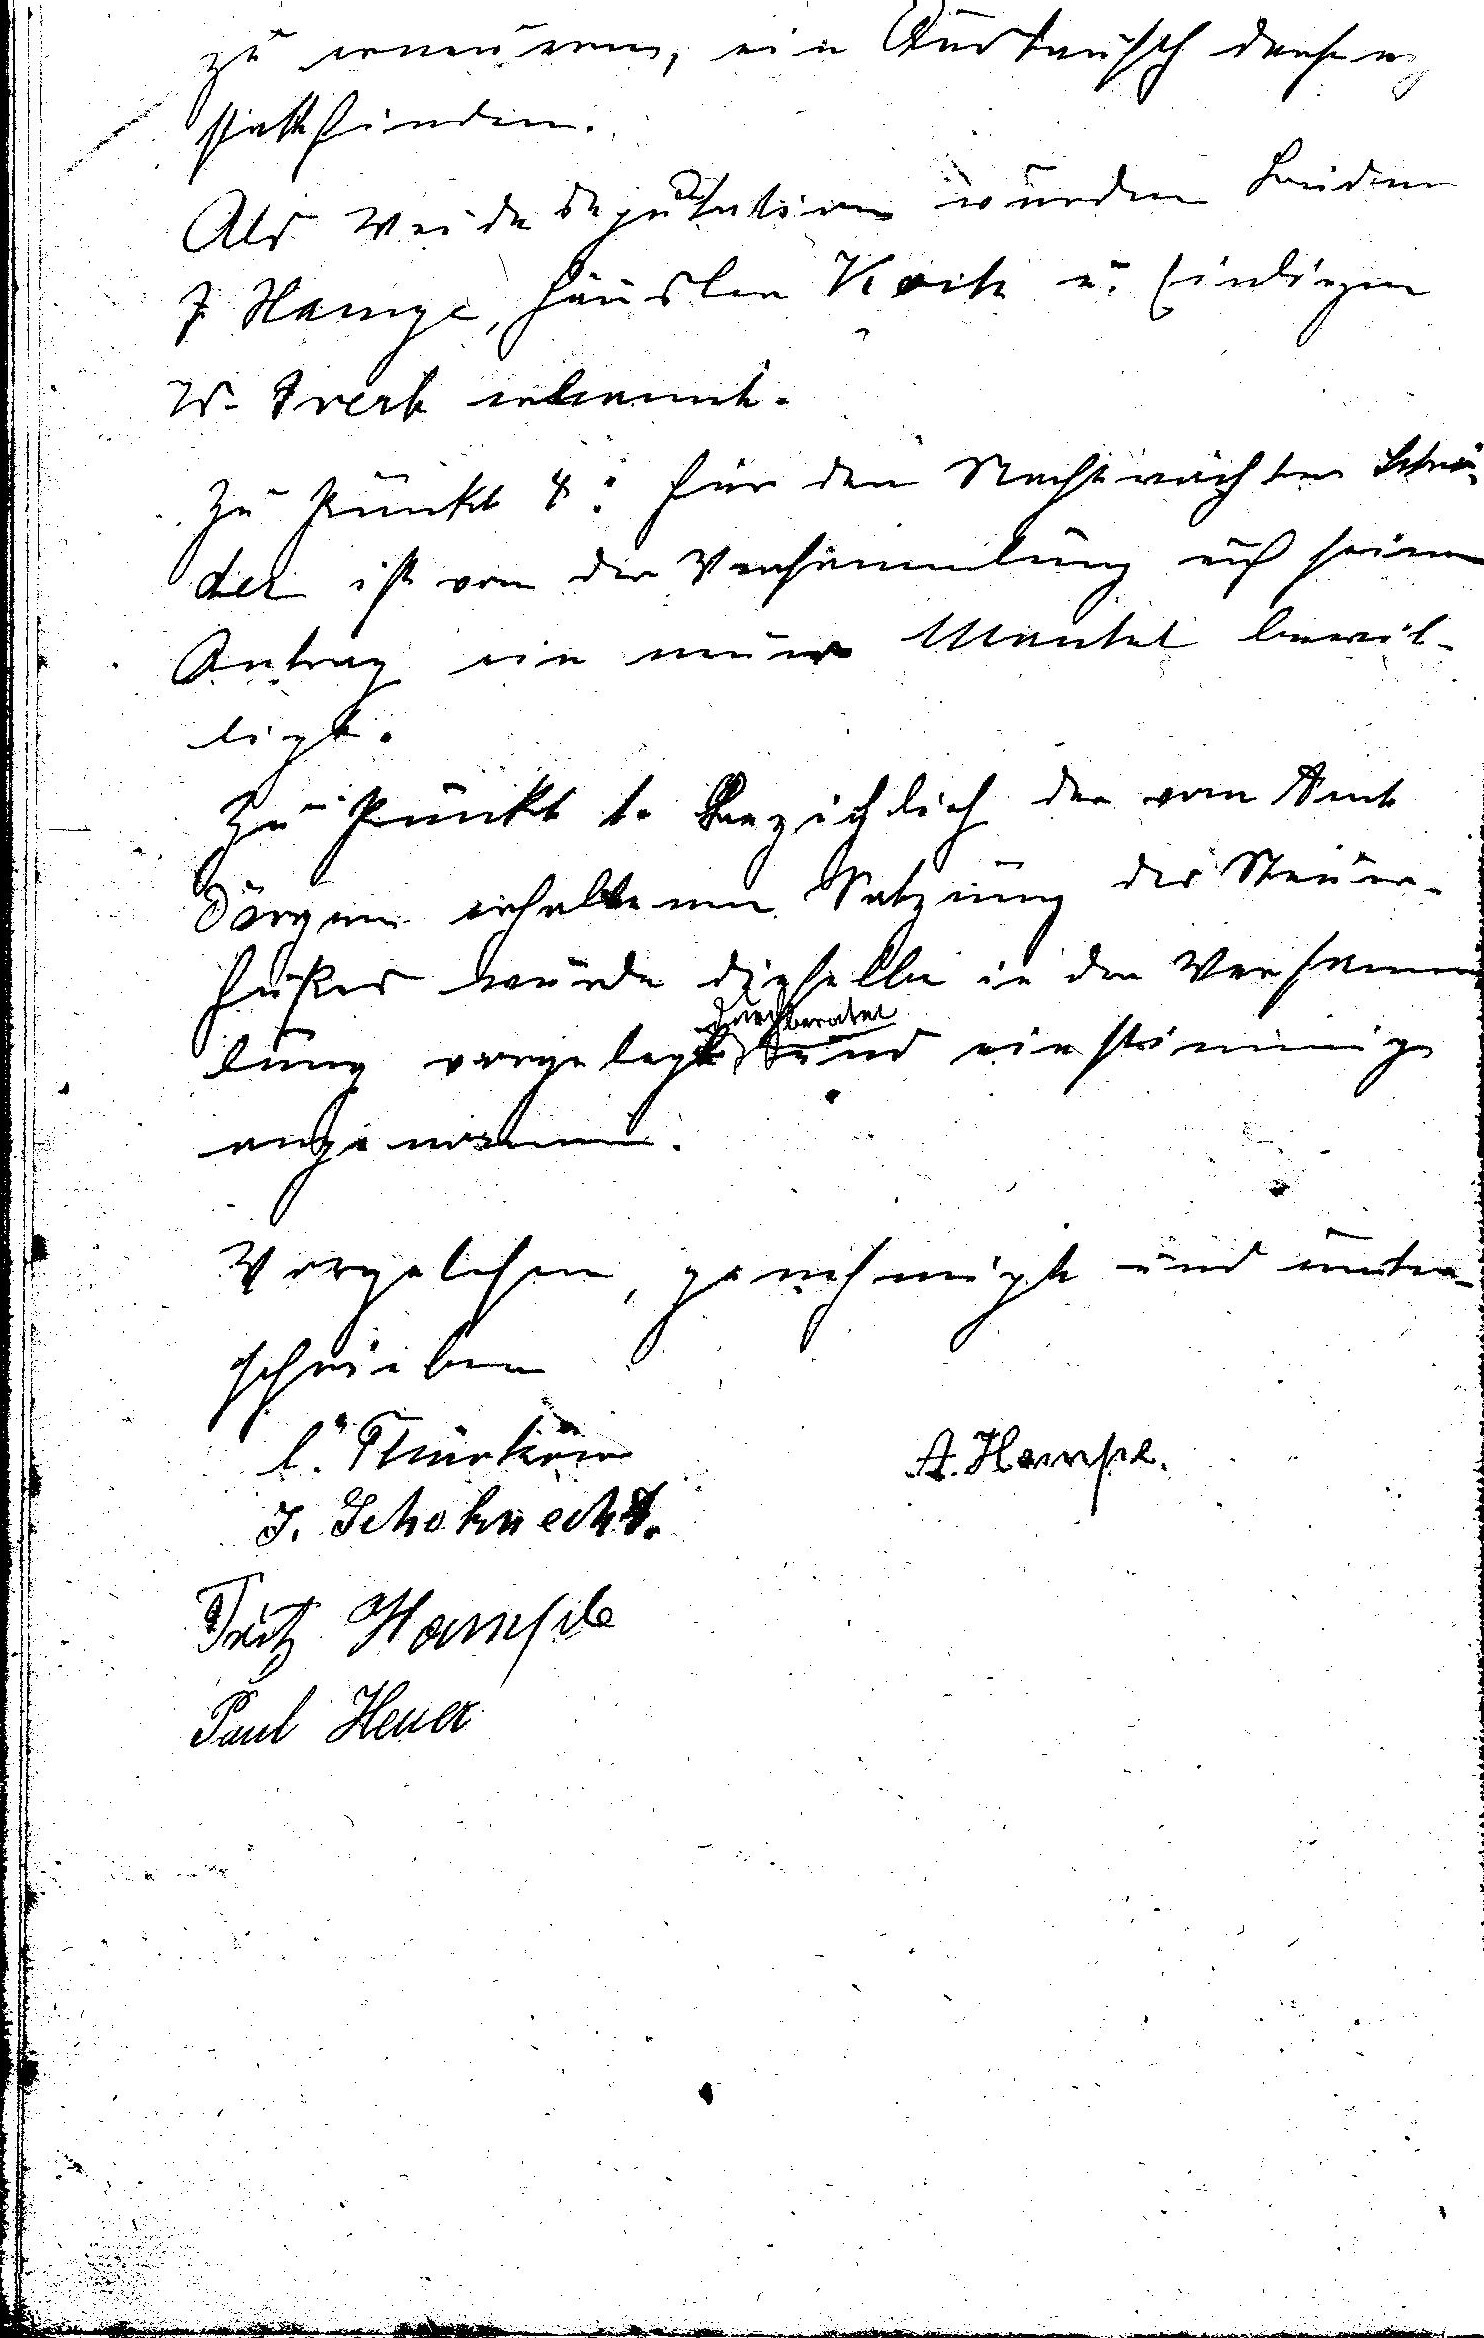 zu erneuern, ein Austausch
stattfinden.
Als Weidedeputation wurden
Hampe, Häusler u. Einlieger
W. erkannt.
Zu Punkt 4: Für den Nachtwächter Schrö-
der ist von der Versammlung auf seinen
Antrag ein neuer Mantel bewil-
ligt.
Zu Punkt 1. Bezichlich der vom Amt
erhaltenen Satzung des Steuer-
wurde dieselbe in der Versamm
lung vorgelegt durchberatet und einstimmig
angenommen.
Vorgelesen, genehmigt und unter-
schrieben
A. Hampe.
J. Schoknecht.
Fritz Hampe
Paul Heuer